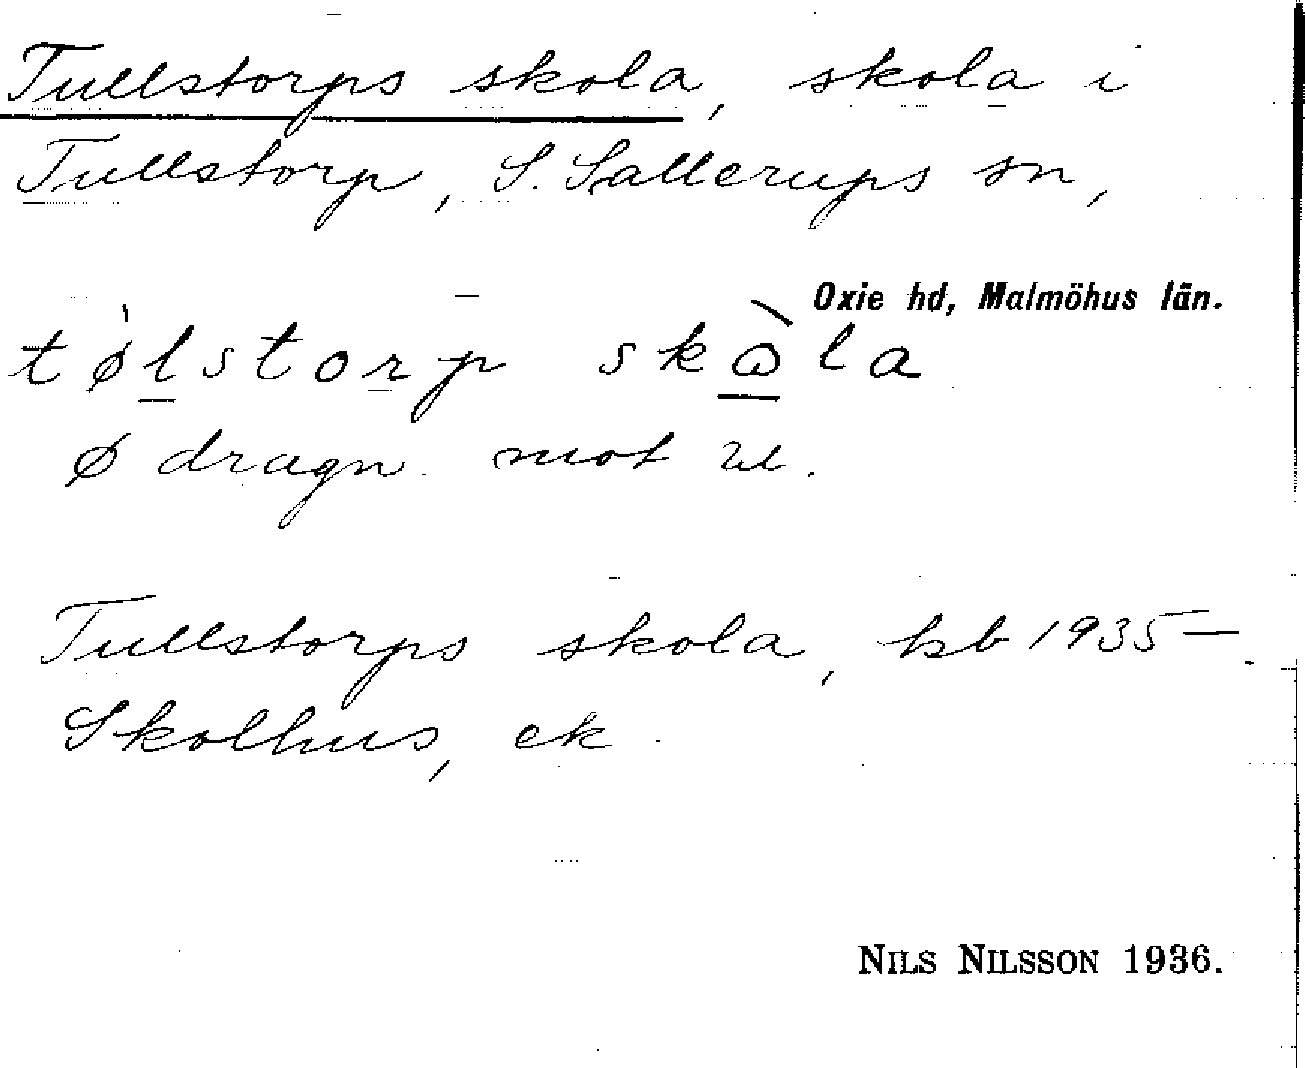 Tullstorps skola, skola i
Tullstorp, S. Sallerups sn,
Oxie hd, Malmöhus län.
tø̍lstorp skὼla
ø dragn. mot
Tullstorps skola, kb 1935—
Skolhus, ek.
NILS NILSSON 1936.